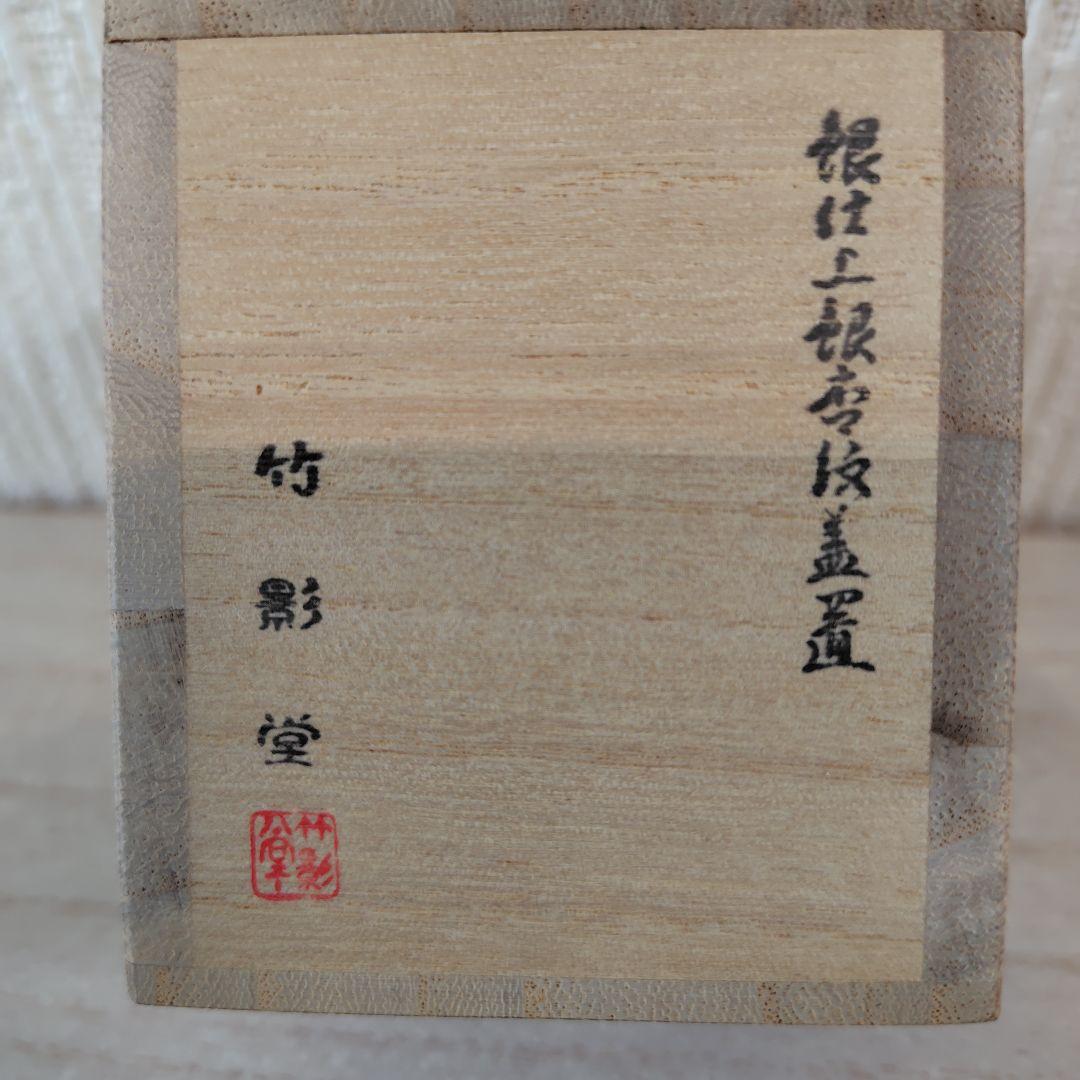 銀仕上銀杏紋蓋置
竹影堂
竹影堂